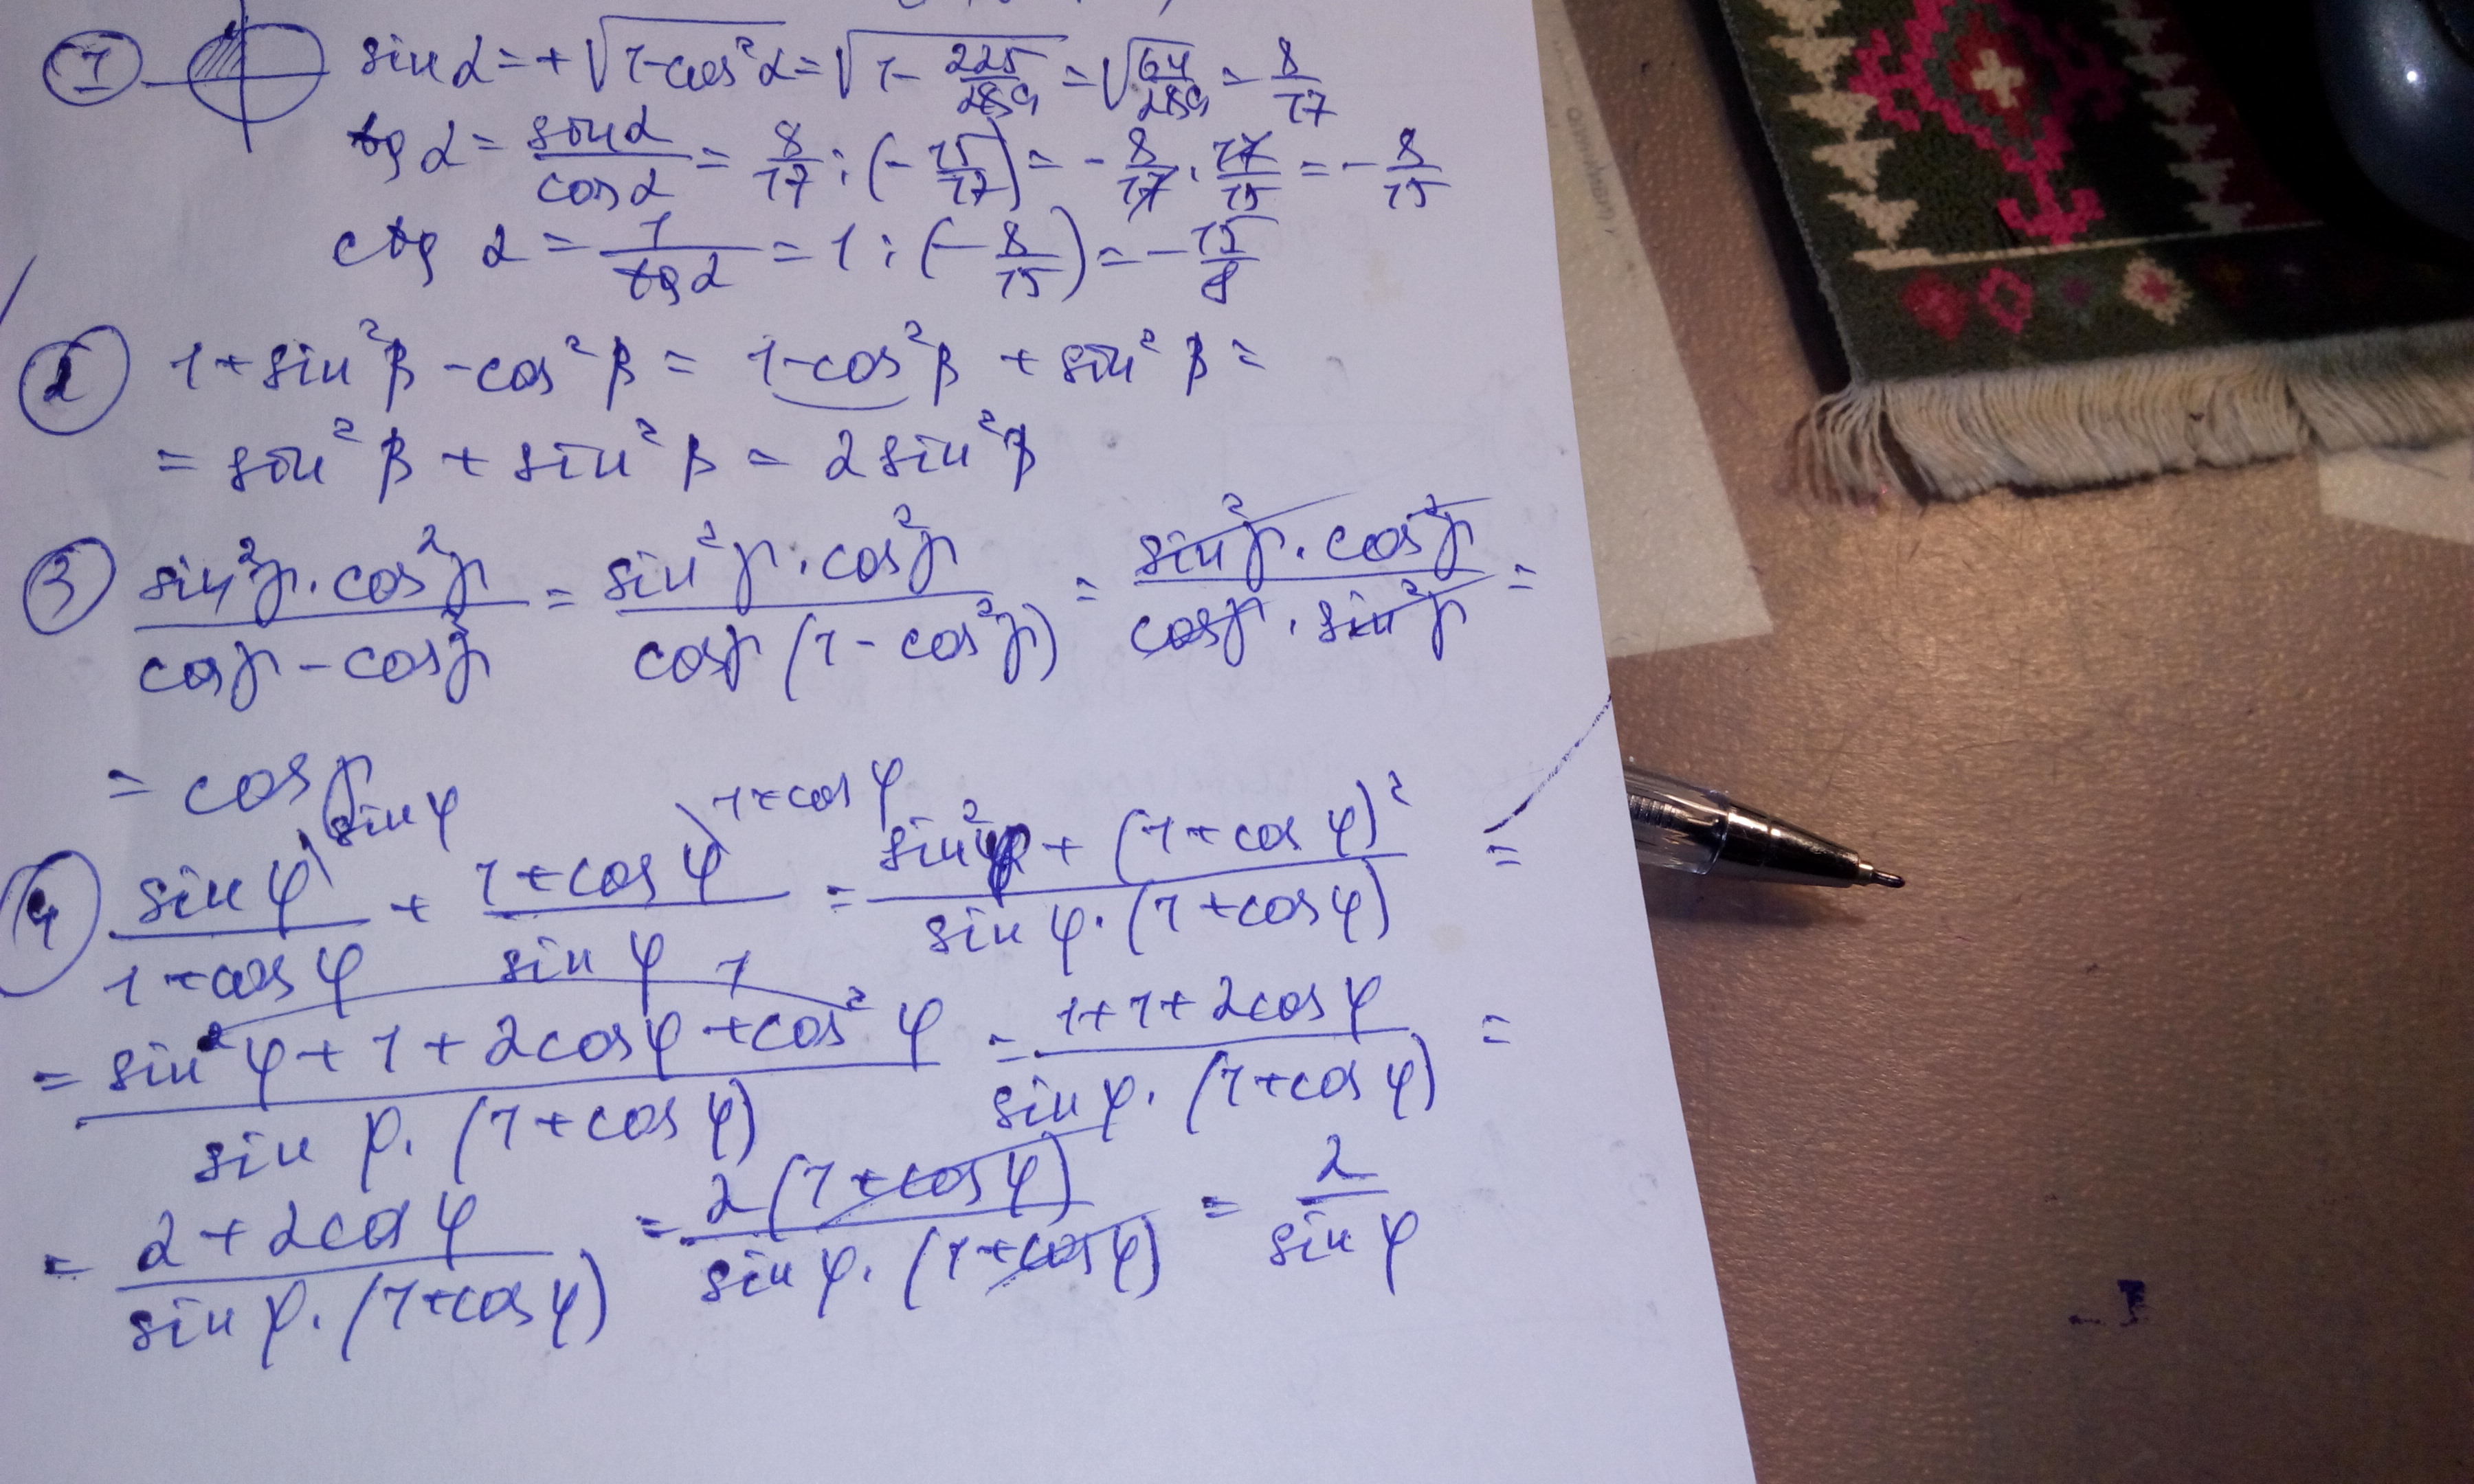 ① sin α = +√(1-cos²α) = √(1 - 225/289) = √(64/289) = 8/17
tg α = sin α/cos α = 8/17 : (-15/17) = - 8/17 · 17/15 = - 8/15
ctg α = 1/tg α = 1 : (- 8/15) = - 15/8
② 1 + sin²β - cos²β = 1 - cos²β + sin²β =
= sin²β + sin²β = 2 sin²β
③ (sin²γ · cos²γ)/(cosγ - cos³γ) = (sin²γ · cos²γ)/(cosγ (1 - cos²γ)) = (sin²γ · cos²γ)/(cosγ · sin²γ) =
= cosγ
④ sin φ/(1 + cos φ) ⁾sin φ + (1 + cos φ)/sin φ ⁾1 + cos φ = (sin²φ + (1 + cos φ)²)/(sin φ · (1 + cos φ)) =
1
= (sin²φ + 1 + 2cos φ + cos²φ)/(sin φ · (1 + cos φ)) = (1 + 1 + 2cos φ)/(sin φ · (1 + cos φ)) =
= (2 + 2cos φ)/(sin φ · (1 + cos φ)) = 2(1 + cos φ)/(sin φ · (1 + cos φ)) = 2/sin φ